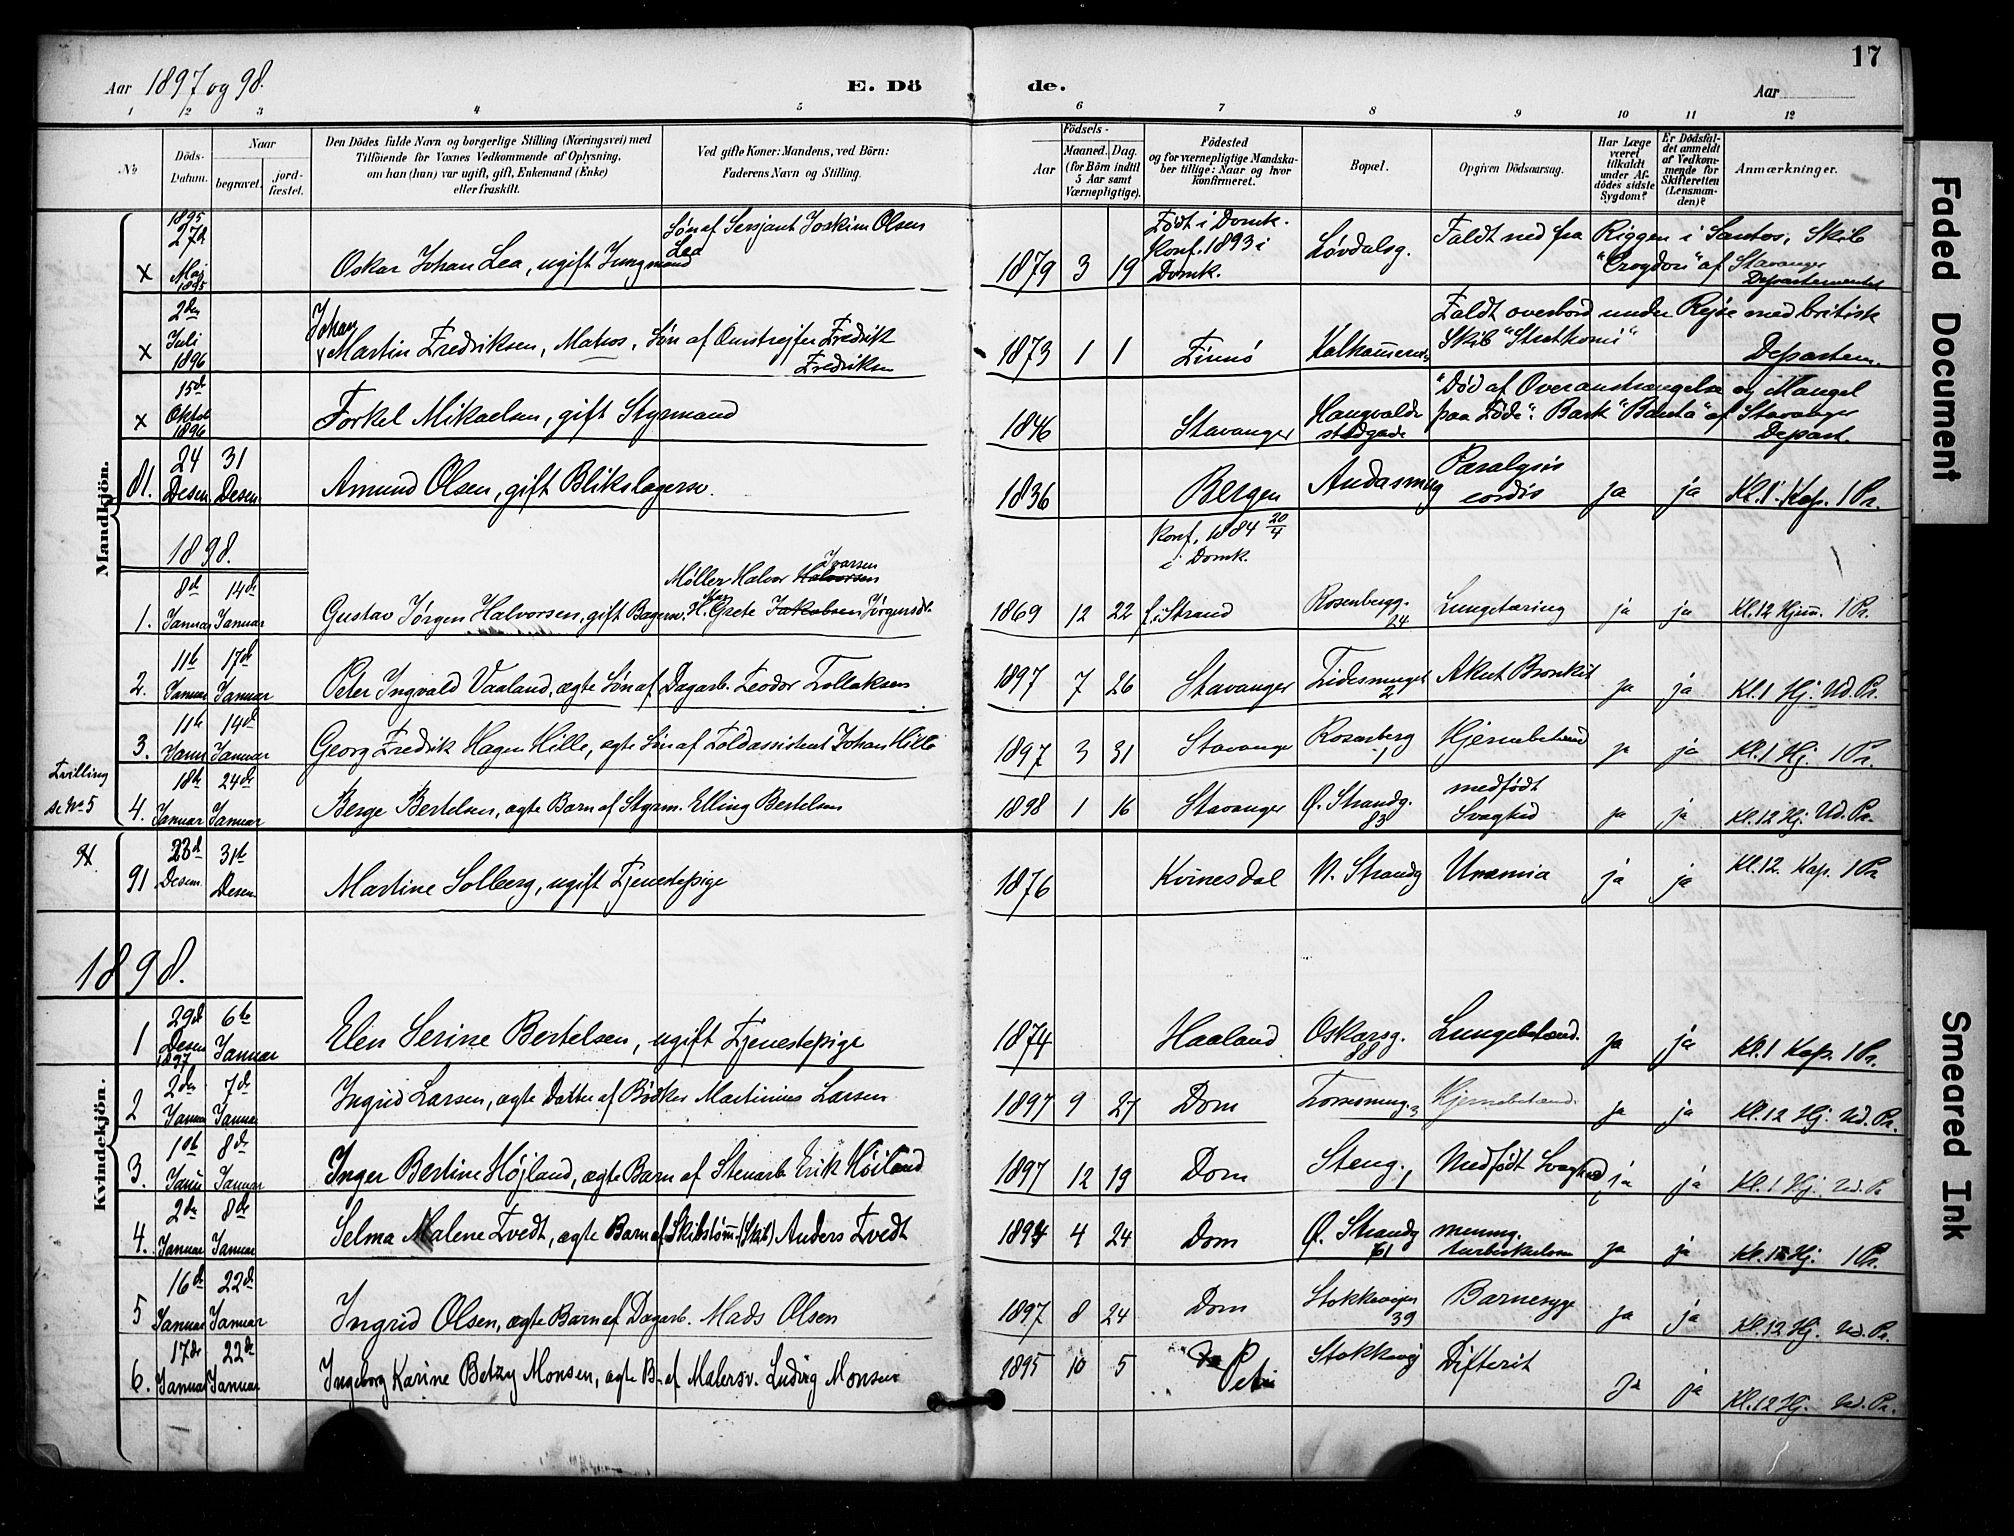 17
Aar 1897 og 98.
E. Dö
de.
Aar
1 2 3 4 5 6 7 8 9 10 11 12
No
Döds-Datum.
Naar
begravet.
jord-fæstet.
Den Dödes fulde Navn og borgerlige Stilling (Næringsvei) med
Tilföiende for Voxnes Vedkommende af Oplysning,
om han (hun) var ugift, gift, Enkemand (Enke)
eller fraskilt.
Ved gifte Koner: Mandens, ved Börn:
Faderens Navn og Stilling.
Födsels-
Aar
Maaned. Dag.
(for Börn indtil
5 Aar samt
Værnepligtige).
Födested
og for værnepligtige Mandska-
ber tillige: Naar og hvor
konfirmeret.
Bopæl.
Opgiven Dödsaarsag.
Har Læge
været
tilkaldt
under Af-
dödes sidste
Sygdom?
Er Dödsfal-
det anmeldt
af Vedkom-
mende for
Skifteretten
(Lensman-
den)?
Anmærkninger.
Mandkjön.
x 1895 27d Maj 1895 Oskar Johan Lea, ugift Jungmand Søn af Sersjant Joakim Olsen Lea 1879 3 19 Født i Domk. Konf. 1893 i Domk. Løvdalsg. Faldt ned fra Riggen i Santos, Skib "Crogdon" af Stavanger Departementet
x 2den Juli 1896 Johan Martin Fredriksen, Matros, Søn af Omstrejfer Fredrik Fredriksen 1873 1 1 Finnø Faldt overbord under Rejse med britisk Skib Departem.
x 15d Oktob 1896 Torkel Mikaelsen, gift Styrmand 1846 Stavanger Haugvaldstadgade "Død af Overanstrængelse og Mangel paa Føde". Bark "Banta" af Stavanger Depart.
81. 24 Desem 31 Desem Amund Olsen, gift Blikslagersv. 1836 Bergen Andasmug Paralysis cordis ja ja Kl. 1 Kap. 1 Pr.
1898.
1. 8d Januar 14d Januar Gustav Jørgen Halvorsen, gift Bagersv. Møller Halvor Halvorsen Ivarsen H. Mar. Grete Jakobsen Jørgensdt. 1869 12 22 f. i Strand Konf. 1884 20/4 i Domk. Rosenbergg. 24 Lungetæring ja ja Kl. 12 Hjem. 1 Pr.
2. 11te Januar 17d Januar Peter Ingvald Vaaland, ægte Søn af Dagarb. Teodor Tollaksen 1897 7 26 Stavanger Fidesmuget 2 Akut Bronkit ja ja Kl. 1 Hj. Ud. Pr.
3. 11te Janu 14d Januar Georg Fredrik Hagen Hille, ægte Søn af Toldassistent Johan Hille 1897 3 31 Stavanger Rosenberg 1 Hjernebetænd ja ja Kl. 1 Hj. 1 Pr.
Tvilling se No 5
4. 18de Januar 24de Januar Berge Bertelsen, ægte Barn af Styrm. Elling Bertelsen 1898 1 16 Stavanger Ø. Strandg. 83 medfødt Svaghed ja ja Kl. 12 Hj. Ud. Pr.
91 23d Desem 31te Desem Martine Solberg, ugift Tjenestepige 1876 Kvinesdal N. Strandg Uræmia ja ja Kl. 12. Kap. 1 Pr
1898.
Kvindekjön.
1 29d Desem 1897 6te Januar Elen Serine Bertelsen, ugift Tjenestepige 1874 Haaland Oskarsg. 88 Lungebetænd. ja ja Kl. 1 Kap. 1 Pr.
2 2den Januar 7d Januar Ingrid Larsen, ægte Datter af Bødker Martinius Larsen 1897 9 27 Dom Hjernebetænd. ja ja Kl. 12 Hj. Ud. Pr.
3. 1ste Janu 8de Januar Inger Bertine Højland, ægte Barn af Stenarb. Erik Høiland 1897 12 19 Dom Steng. 1 Medfødt Svaghed ja ja Kl. 1 Hj. Ud. Pr
4. 2de Januar 8de Januar Selma Malene Tvedt, ægte Barn af Skibstøm. (Skib) Anders Tvedt 1894 4 24 Dom Ø. Strandg 61 mening. tuberkulose ja ja Kl. 12 Hj. 1 Pr.
5 16de Januar 22de Januar Ingrid Olsen, ægte Barn af Dagarb. Mads Olsen 1897 8 24 Dom Stokkavejen 39 Barnesyge ja ja Kl. 12 Hj. Ud. Pr.
6. 17de Januar 22de Januar Ingeborg Karine Betzy Monsen, ægte B. af Malersv. Ludvig Monsen 1895 10 5 Petri Stokkavej Difterit ja ja Kl. 12 Hj. Ud. Pr.
Faded Document
Smeared Ink